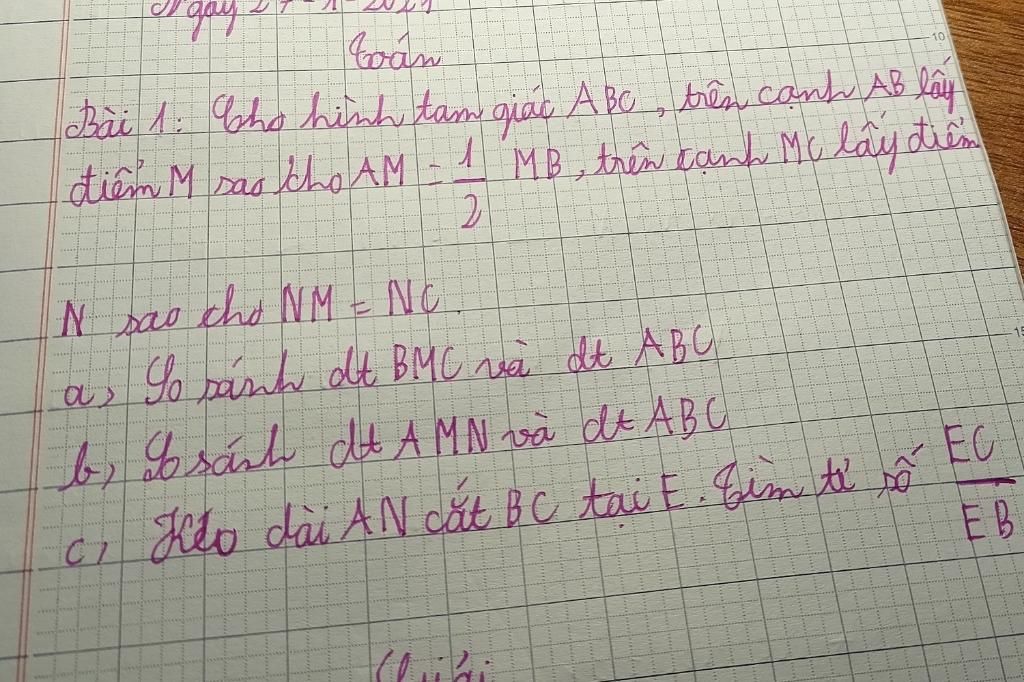 Ngày 27-1-2021
Toán
Bài 1: Cho hình tam giác ABC, trên cạnh AB lấy
điểm M sao cho AM = 1/2 MB, trên cạnh MC lấy điểm
N sao cho NM = NC.
a, So sánh dt BMC và dt ABC
b, So sánh dt AMN và dt ABC
c, Kéo dài AN cắt BC tại E. Tìm tỉ số EC/EB
10
15